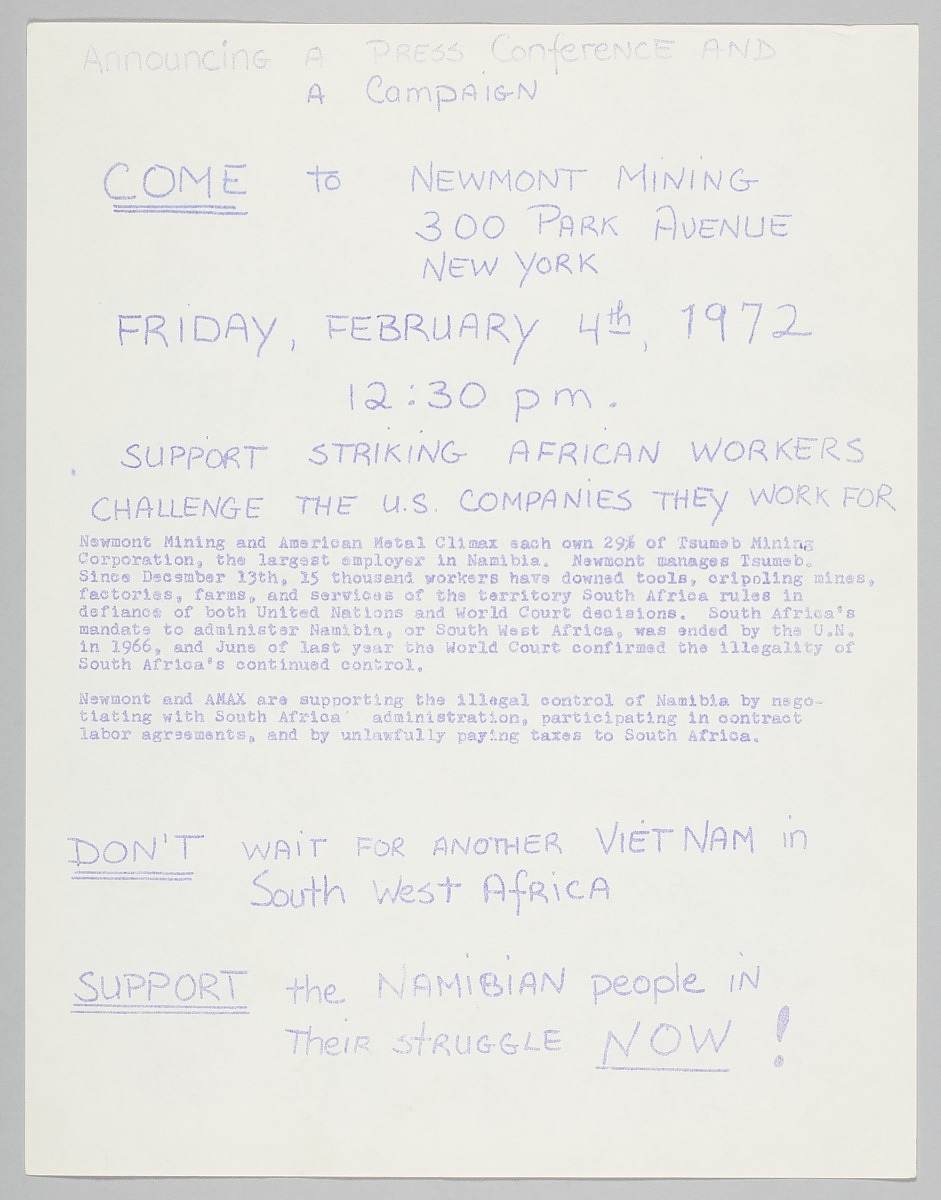 Announcing A PRESS Conference AND
A Campaign
COME to NEWMONT MINING
300 PARK AVENUE
NEW YORK
FRIDAY, FEBRUARY 4th, 1972
12:30 pm.
SUPPORT STRIKING AFRICAN WORKERS
CHALLENGE THE U.S. COMPANIES THEY WORK FOR
Newmont Mining and American Metal Climax each own 29% of Tsumeb Mining
Corporation, the largest employer in Namibia. Newmont manages Tsumeb.
Since December 13th, 15 thousand workers have downed tools, cripoling mines,
factories, farms, and services of the territory South Africa rules in
defiance of both United Nations and World Court decisions. South Africa's
mandate to administer Namibia, or South West Africa, was ended by the U.N.
in 1966, and June of last year the World Court confirmed the illegality of
South Africa's continued control.
Newmont and AMAX are supporting the illegal control of Namibia by nego-
tiating with South Africa' administration, participating in contract
labor agreements, and by unlawfully paying taxes to South Africa.
DON'T WAIT FOR ANOTHER VIET NAM in
South West Africa
SUPPORT the NAMIBIAN people IN
Their STRUGGLE NOW!